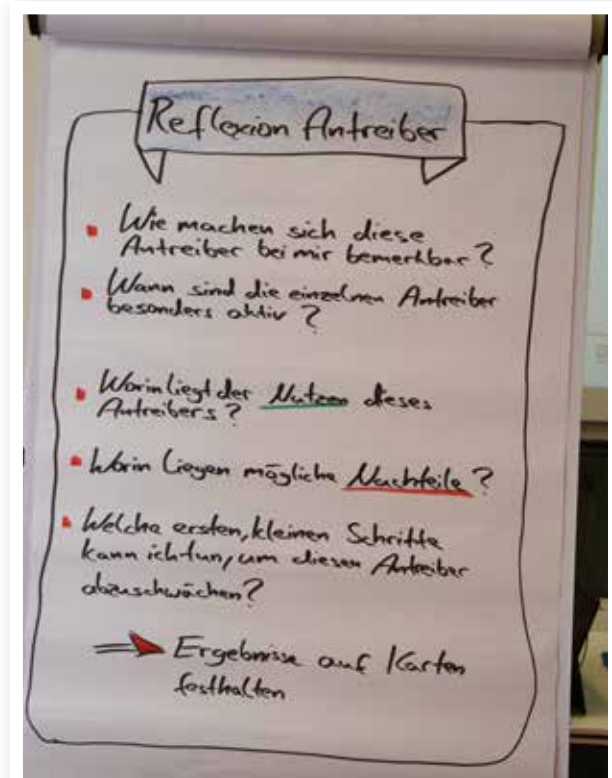 Reflexion Antreiber
Wie machen sich diese
Antreiber bei mir bemerkbar?
Wann sind die einzelnen Antreiber
besonders aktiv?
Worin liegt der Nutzen dieses
Antreibers?
Worin liegen mögliche Nachteile?
Welche ersten, kleinen Schritte
kann ich tun, um diesen Antreiber
abzuschwächen?
Ergebnisse auf Karten
festhalten